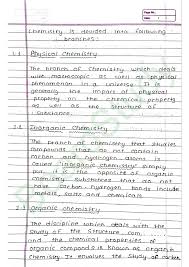 Page No.
Date
Chemistry is devided into following
branches:
1.1 Physical Chemistry
The branch of Chemistry which deals
with macroscopic as well as physical
phenomenon in a universe. It is
generally the impact of physical
property on the chemical property
as well as the structure of
substance.
Inorganic Chemistry
The branch of chemistry that studies
compounds that do not contain
carbon and hydrogen atoms is
called 'inorganic chemistry'. Simply
put, it is the opposite of organic
chemistry. Substances that do not
have carbon-hydrogen bonds include
metals, salts and chemicals
Organic Chemistry
The discipline which deals with the
study of the structure, com.
and the chemical properties of
organic compounds is known as organic
chemistry. It involves the study of carbon